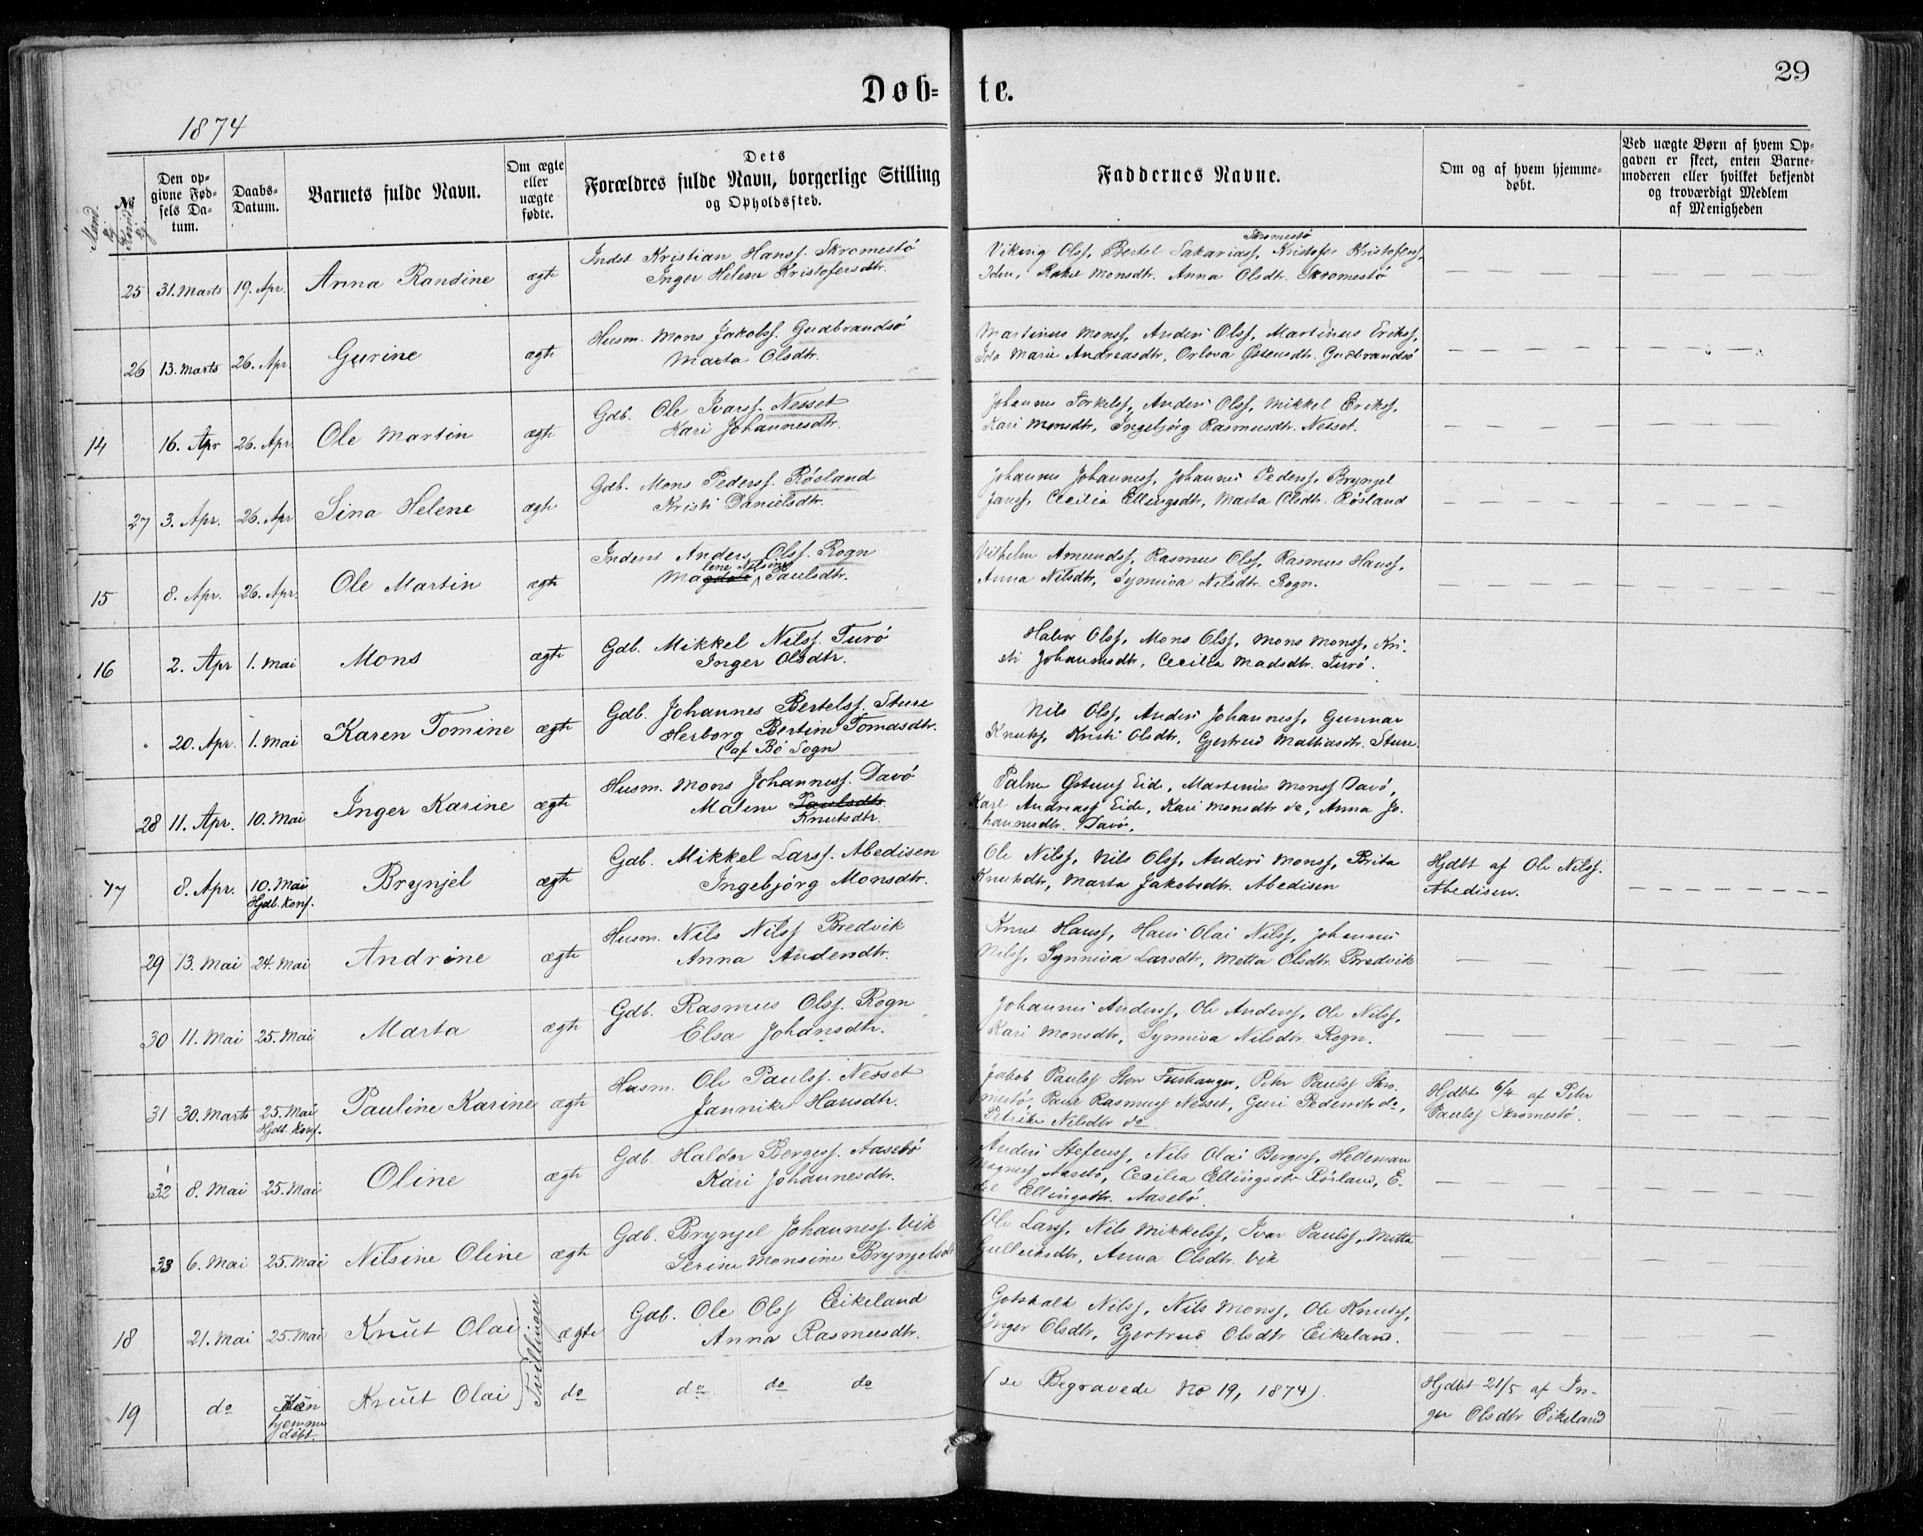 29
Døb- te.
1874
No
Mandkj.
Kvindkj.
Den op-
givne Fød-
sels Da-
tum.
Daabs-
Datum.
Barnets fulde Navn.
Om ægte
eller
uægte
fødte.
Dets
Forældres fulde Navn, borgerlige Stilling
og Opholdssted.
Faddernes Navne.
Om og af hvem hjemme-
døbt.
Ved uægte Børn af hvem Op-
gaven er skeet, enten Barne-
moderen eller hvilket bekjendt
og troværdigt Medlem
af Menigheden
25 31. Marts 19. Apr. Anna Randine ægte
Inderst Kristian Hanss. Skromestø
Inger Helene Kristofersdtr.
Viking Olss, Bertel Sakariass, Skromestø Kristofer Kristoferss,
Iden, Rakel Monsdt. Anna Olsdt. Skromestø
26 13. Marts 26. Apr. Gurine ægte
Husm. Mons Jakobss. Gudbrandsø
Marta Olsdtr.
Martinus Monss, Anders Olss, Martinus Erikss,
Ida Marie Andreasdtr, Orlova Østensdtr. Gudbrandsø
14 16. Apr 26. Apr. Ole Martin ægte
Gdb. Ole Ivarss. Nesset
Kari Johannesdtr.
Johannes Torkelss, Anders Olss, Mikkel Erikss,
Kari Monsdtr, Ingebjørg Rasmusdtr. Nesset.
27 3. Apr. 26. Apr Sina Helene ægte
Gdb. Mons Pederss. Røsland
Kristi Danielsdtr.
Johannes Johanness, Johannes Pederss, Brynjel
Janss, Cecilia Ellingsdtr, Marta Olsdtr. Røsland
15 8. Apr. 26. Apr. Ole Martin ægte
Inderst Anders Olss. Rogn
Magdalene Nilsine Paulsdtr.
Vilhelm Amundss, Rasmus Olss, Rasmus Hanss,
Anna Nilsdtr, Synniva Nilsdtr Rogn.
16 2. Apr 1. Mai Mons ægte
Gdb. Mikkel Nilss. Turø
Inger Olsdtr.
Halvor Olss, Mons Olss, Mons Monss, Kri-
sti Johannesdtr, Cecilia Madsdtr. Turø.
20. Apr. 1. Mai Karen Tomine ægte
Gdb. Johannes Bertelss. Sture
Herborg Bertine Tomasdtr.
(af Bø Sogn)
Nils Olss, Anders Johanness, Gunnar
Knutss, Kristi Olsdtr, Gjertrud Mathiasdtr. Sture
28 11. Apr. 10. Mai Inger Karine ægte
Husm. Mons Johanness. Davø
Malene Paulsdtr
Knutsdtr.
Palme Østenss Eide, Martinus Monss Davø,
Karl Andreass Eide, Kari Monsdtr do, Anna Jo-
hannesdtr. Davø.
17 8. Apr. 10. Mai Hjdb. Konf. Brynjel ægte
Gdb. Mikkel Larss. Abedisen
Ingebjørg Monsdtr.
Ole Nilss, Nils Olss, Anders Monss, Brita
Knutsdtr, Marta Jakobsdtr. Abedisen
Hjdbt af Ole Nilss.
Abedisen.
29 13. Mai 24. Mai Andrine ægte
Husm. Nils Nilss Bredvik
Anna Andersdtr.
Knut Hanss, Hans Olai Nilss, Johannes
Nilss, Synniva Larsdtr, Metta Olsdtr. Bredvik
30 11. Mai 25. Mai Marta ægte
Gdb. Rasmus Olss. Rogn
Elsa Johansdtr.
Johannes Anderss, Ole Anderss, Ole Nilss,
Kari Monsdtr, Synniva Nilsdtr Rogn.
31 30. Marts 25. Mai Hjdb. Konf. Pauline Karine ægte
Husm. Ole Paulss. Nesset
Jannike Hansdtr.
Jakob Paulss Store Turhanger, Peter Paulss Skro-
mestø, Paul Rasmuss Nesset, Guri Pedersdtr do,
Petrike Nilsdtr do
Hjdbt 6/4 af Peter
Paulss Skromestø.
32 8. Mai 25. Mai Oline ægte
Gdb. Haldor Bergess. Aasebø
Kari Johannesdtr.
Anders Stefenss, Nils Olai Bergess, Helleman
Magness Aasebø, Cecilia Ellingsdtr Røsland, E-
del Ellingsdtr. Aasebø
33 6. Mai 25. Mai Nilsine Oline ægte
Gdb. Brynjel Johanness. Vik
Serine Monsine Brynjelsdt
Ole Larss, Nils Mikkelss, Ivar Paulss, Metta
Gulleiksdtr, Anna Olsdtr. Vik
18 21. Mai 25. Mai Knut Olai ægte
Tvillinger
Gdb. Ole Olss Eikeland
Anna Rasmusdtr.
Gotskalk Nilss, Nils Monss, Ole Knutss,
Inger Olsdtr, Gjertrud Olsdtr Eikeland.
19 do Kun hjemme døbt. Knut Olai do
do do do
(se Begravede No 19, 1874).
Hjdbt 21/5 af In-
ger Olsdtr Eikeland